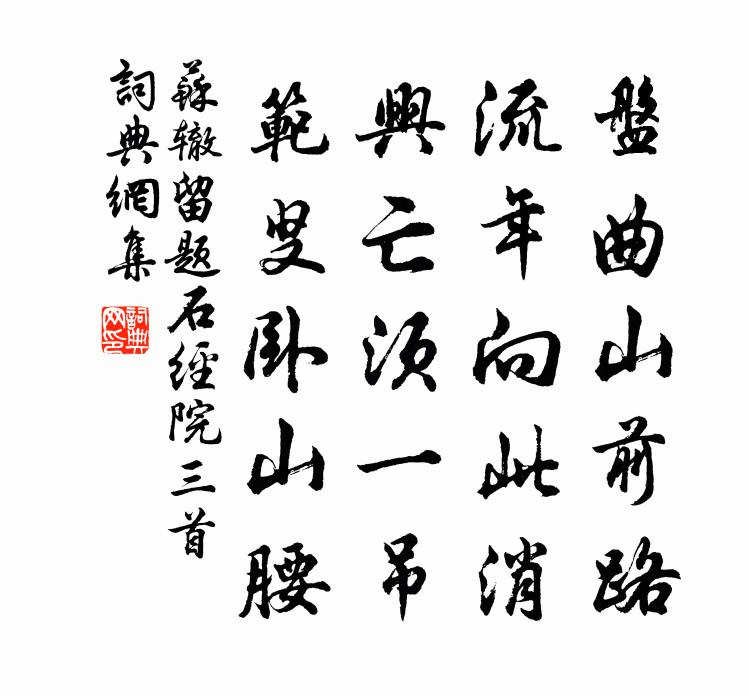 盤曲山前路
流年向此消
興亡須一吊
範叟卧山腰
蘇辙留题石經院三首
詞典網集
詞典网印